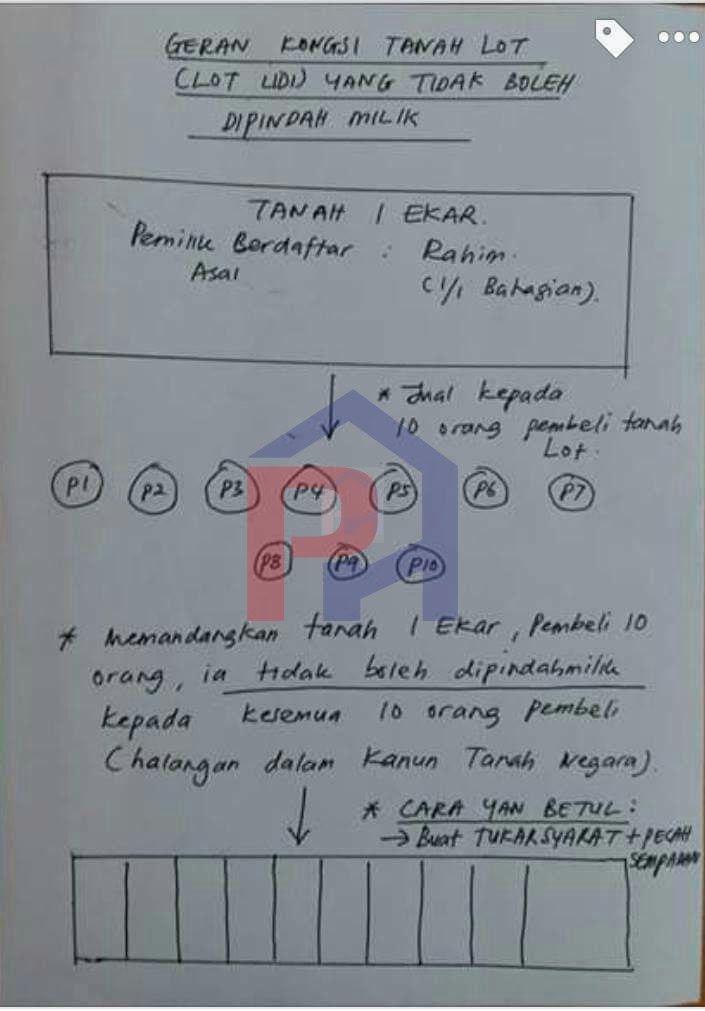 GERAN KONGSI TANAH LOT
(LOT LIDI) YANG TIDAK BOLEH
DIPINDAH MILIK
TANAH 1 EKAR.
Pemilik Berdaftar : Rahim.
Asal (1/1 Bahagian).
* Jual kepada
10 orang pembeli tanah
Lot.
P1 P2 P3 P4 P5 P6 P7
P8 P9 P10
* Memandangkan tanah 1 Ekar, Pembeli 10
orang, ia tidak boleh dipindahmilik
kepada kesemua 10 orang pembeli
(halangan dalam Kanun Tanah Negara).
* CARA YAN BETUL:
→ Buat TUKAR SYARAT + PECAH
SEMPADAN
PA